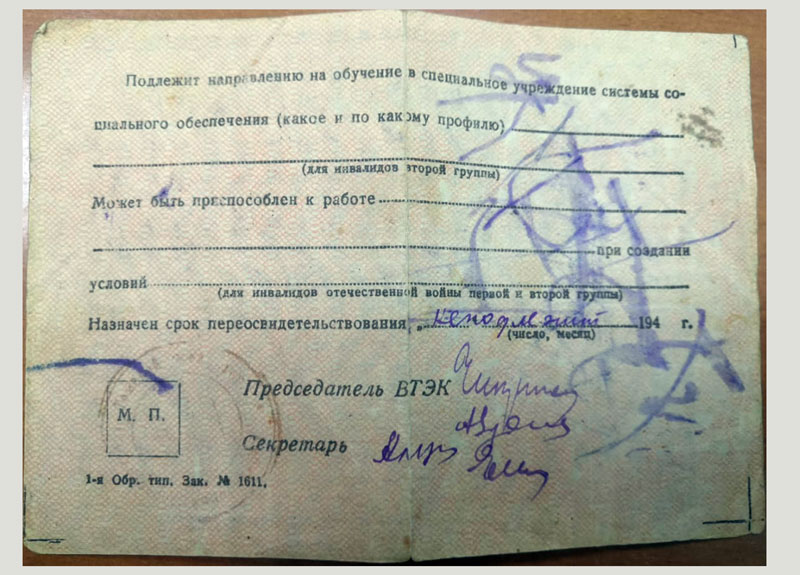 Подлежит направлению на обучение в специальное учреждение системы со-
циального обеспечения (какое и по какому профилю)
(для инвалидов второй группы)
Может быть приспособлен к работе
при создании
условий
(для инвалидов отечественной войны первой и второй группы)
Назначен срок переосвидетельствования „ неподлежит 194 г.
(число, месяц)
Председатель ВТЭК
М. П.
Секретарь
1-я Обр. тип. Зак. № 1611.